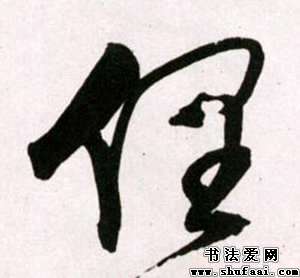 俚
书法爱网
www.shufaai.com